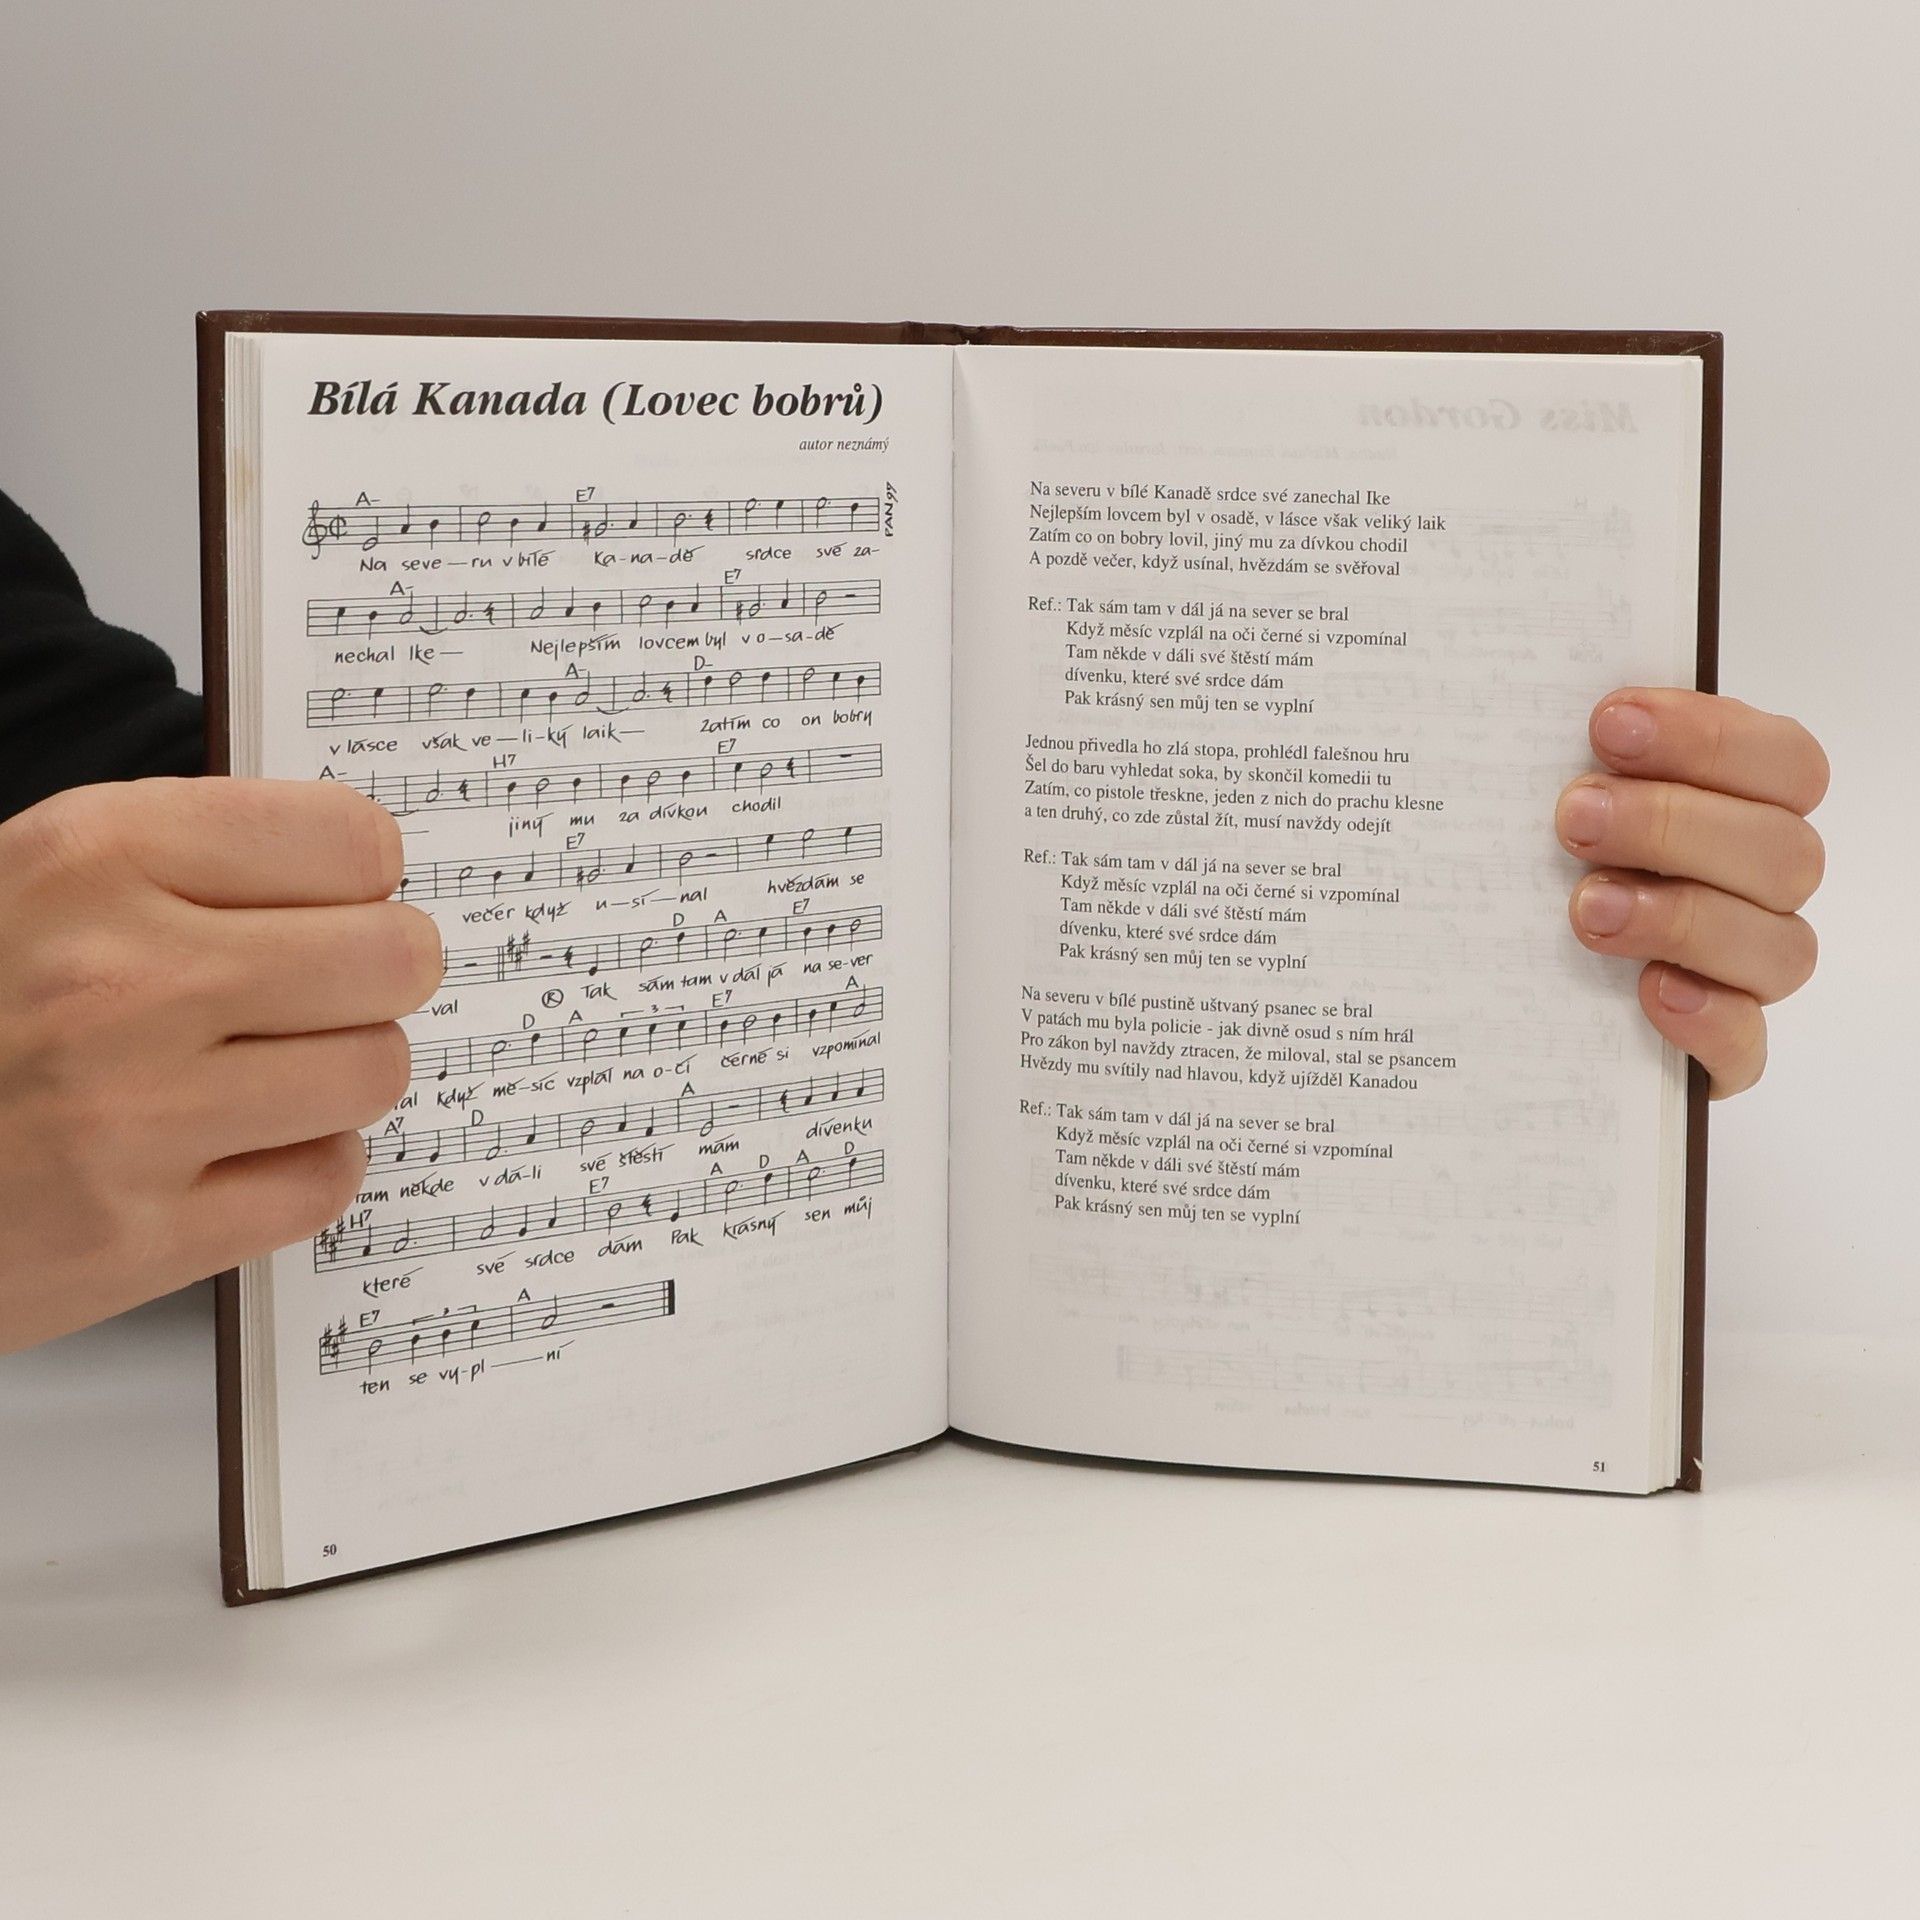 Bílá Kanada (Lovec bobrů)
autor neznámý
PAN99
A- E7
Na seve—ru v bílé Ka-na-dě srdce své za-
A- E7
nechal Ike— Nejlepším lovcem byl v o—sa-dě
A- D-
v lásce však ve—li-ký laik— Zatím co on bobry
A- H7 E7
jiný mu za dívkou chodil
E7
večer když u—sí—nal hvězdám se
D A E7
—val Ⓡ Tak sám tam v dál já na se-ver
D A 3 E7 A
Když mě-síc vzplál na o-čí černé si vzpomínal
A7 D A
tam někde v dá-li své štěstí mám dívenku
H7 E7 A D A D
které své srdce dám Pak krásný sen můj
E7 3 A
ten se vy-pl——ní
50
Miss Gordon
Na severu v bílé Kanadě srdce své zanechal Ike
Nejlepším lovcem byl v osadě, v lásce však veliký laik
Zatím co on bobry lovil, jiný mu za dívkou chodil
A pozdě večer, když usínal, hvězdám se svěřoval
Ref.: Tak sám tam v dál já na sever se bral
Když měsíc vzplál na oči černé si vzpomínal
Tam někde v dáli své štěstí mám
dívenku, které své srdce dám
Pak krásný sen můj ten se vyplní
Jednou přivedla ho zlá stopa, prohlédl falešnou hru
Šel do baru vyhledat soka, by skončil komedii tu
Zatím, co pistole třeskne, jeden z nich do prachu klesne
a ten druhý, co zde zůstal žít, musí navždy odejít
Ref.: Tak sám tam v dál já na sever se bral
Když měsíc vzplál na oči černé si vzpomínal
Tam někde v dáli své štěstí mám
dívenku, které své srdce dám
Pak krásný sen můj ten se vyplní
Na severu v bílé pustině uštvaný psanec se bral
V patách mu byla policie - jak divně osud s ním hrál
Pro zákon byl navždy ztracen, že miloval, stal se psancem
Hvězdy mu svítily nad hlavou, když ujížděl Kanadou
Ref.: Tak sám tam v dál já na sever se bral
Když měsíc vzplál na oči černé si vzpomínal
Tam někde v dáli své štěstí mám
dívenku, které své srdce dám
Pak krásný sen můj ten se vyplní
51